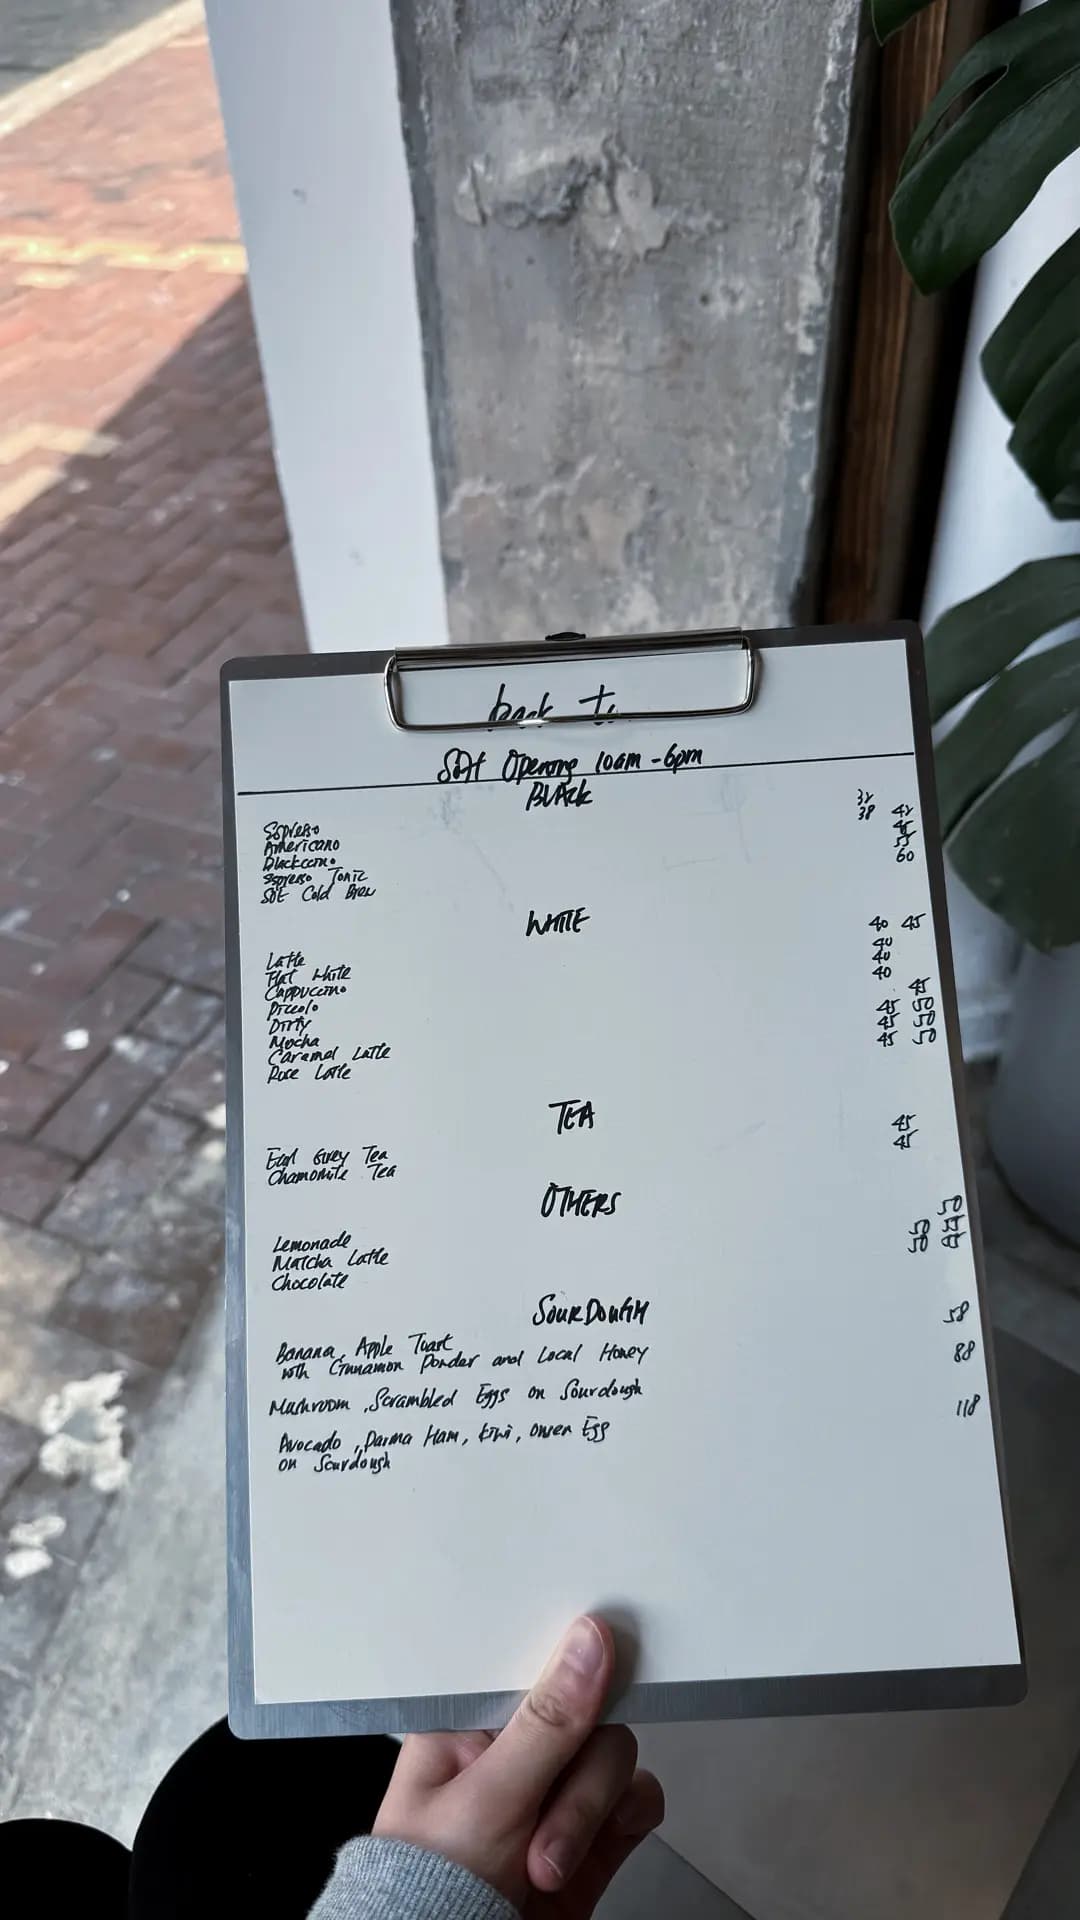 back to
Soft Opening 10am - 6pm
BLACK
Espresso 32
Americano 38 42
Blackccino 45
Espresso Tonic 55
SOE Cold Brew 60
WHITE
Latte 40 45
Flat White 40
Cappuccino 40
Piccolo 40
Dirty 45
Mocha 45 55
Caramel Latte 45 55
Rose Latte 45 55
TEA
Earl Grey Tea 45
Chamomile Tea 45
OTHERS
Lemonade 50
Matcha Latte 55
Chocolate 55
SOURDOUGH
Banana, Apple Toast 58
with Cinnamon Powder and Local Honey
Mushroom, Scrambled Eggs on Sourdough 88
Avocado, Parma Ham, Kiwi, Onsen Egg 118
on Sourdough